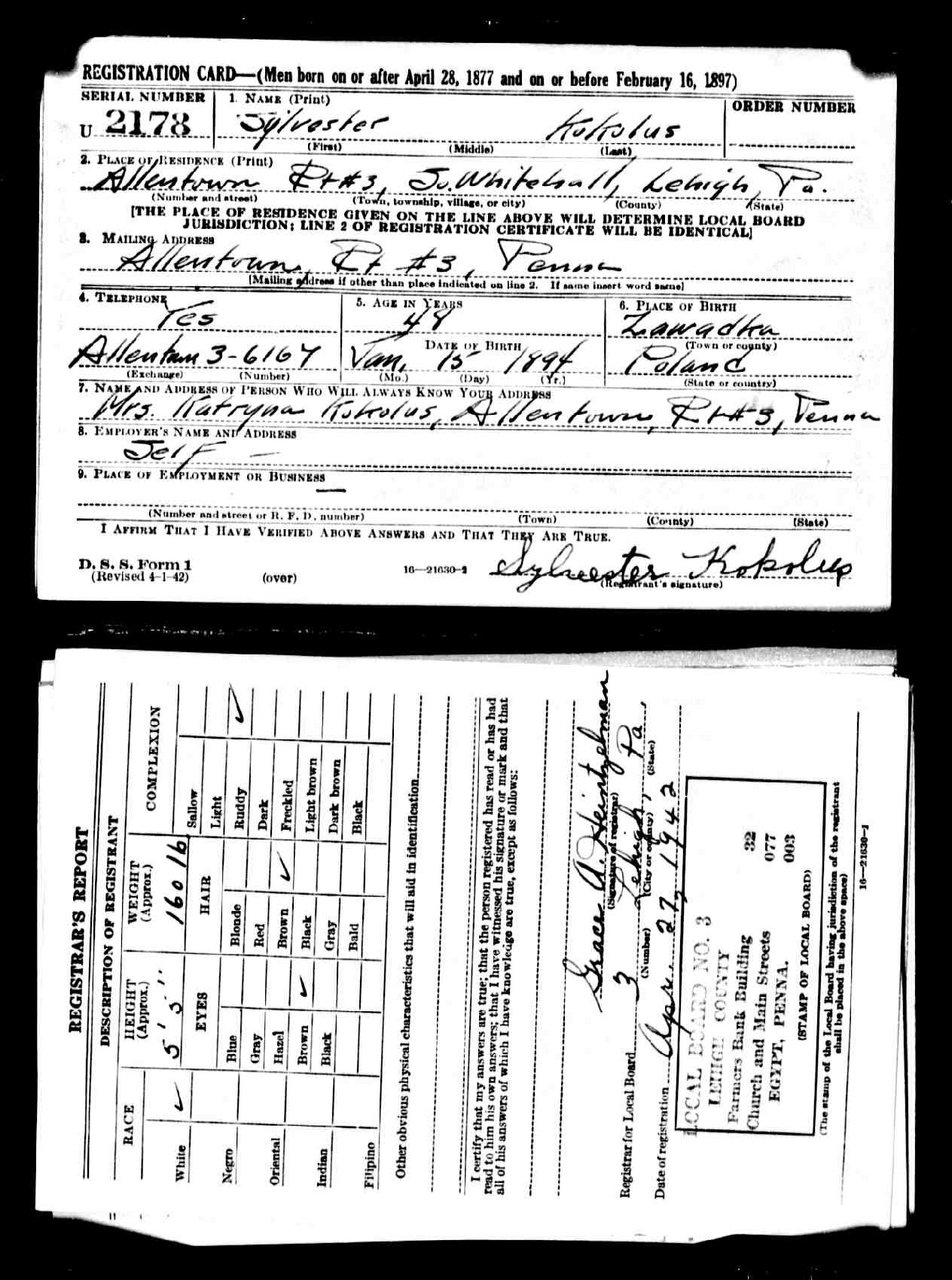 REGISTRATION CARD—(Men born on or after April 28, 1877 and on or before February 16, 1897)
SERIAL NUMBER
1. NAME (Print)
ORDER NUMBER
U 2178
Sylvester Kokolus
(First) (Middle) (Last)
2. PLACE OF RESIDENCE (Print)
Allentown Rt #3, So. Whitehall, Lehigh, Pa.
(Number and street) (Town, township, village, or city) (County) (State)
[THE PLACE OF RESIDENCE GIVEN ON THE LINE ABOVE WILL DETERMINE LOCAL BOARD
JURISDICTION; LINE 2 OF REGISTRATION CERTIFICATE WILL BE IDENTICAL]
3. MAILING ADDRESS
Allentown, Rt #3, Penna
[Mailing address if other than place indicated on line 2. If same insert word same]
4. TELEPHONE
Yes
Allentown 3-6167
(Exchange) (Number)
5. AGE IN YEARS
48
DATE OF BIRTH
Jan. 15 1894
(Mo.) (Day) (Yr.)
6. PLACE OF BIRTH
Zawadka
(Town or county)
Poland
(State or country)
7. NAME AND ADDRESS OF PERSON WHO WILL ALWAYS KNOW YOUR ADDRESS
Mrs. Katryna Kokolus, Allentown, Rt #3, Penna
8. EMPLOYER'S NAME AND ADDRESS
Self —
9. PLACE OF EMPLOYMENT OR BUSINESS
—
(Number and street or R. F. D. number) (Town) (County) (State)
I AFFIRM THAT I HAVE VERIFIED ABOVE ANSWERS AND THAT THEY ARE TRUE.
D. S. S. Form 1
(Revised 4-1-42) (over) 16—21630-2
Sylvester Kokolus
(Registrant's signature)
REGISTRAR'S REPORT
DESCRIPTION OF REGISTRANT
RACE
HEIGHT
(Approx.)
WEIGHT
(Approx.)
COMPLEXION
White ✓
5' 5"
160 lb.
Sallow
Light
Ruddy ✓
Dark
Freckled
Light brown
Dark brown
Black
EYES
HAIR
Negro
Blue
Blonde
Gray
Red
Oriental
Hazel
Brown ✓
Brown ✓
Black
Indian
Black
Gray
Bald
Filipino
Other obvious physical characteristics that will aid in identification
I certify that my answers are true; that the person registered has read or has had
read to him his own answers; that I have witnessed his signature or mark and that
all of his answers of which I have knowledge are true, except as follows:
Grace A. Heintzelman
(Signature of registrar)
Registrar for Local Board 3 Lehigh, Pa.
(Number) (City or county) (State)
Date of registration Apr. 27, 1942
LOCAL BOARD NO. 3
LEHIGH COUNTY 32
Farmers Bank Building 077
Church and Main Streets 003
EGYPT, PENNA.
(STAMP OF LOCAL BOARD)
(The stamp of the Local Board having jurisdiction of the registrant
shall be placed in the above space)
16—21630-1